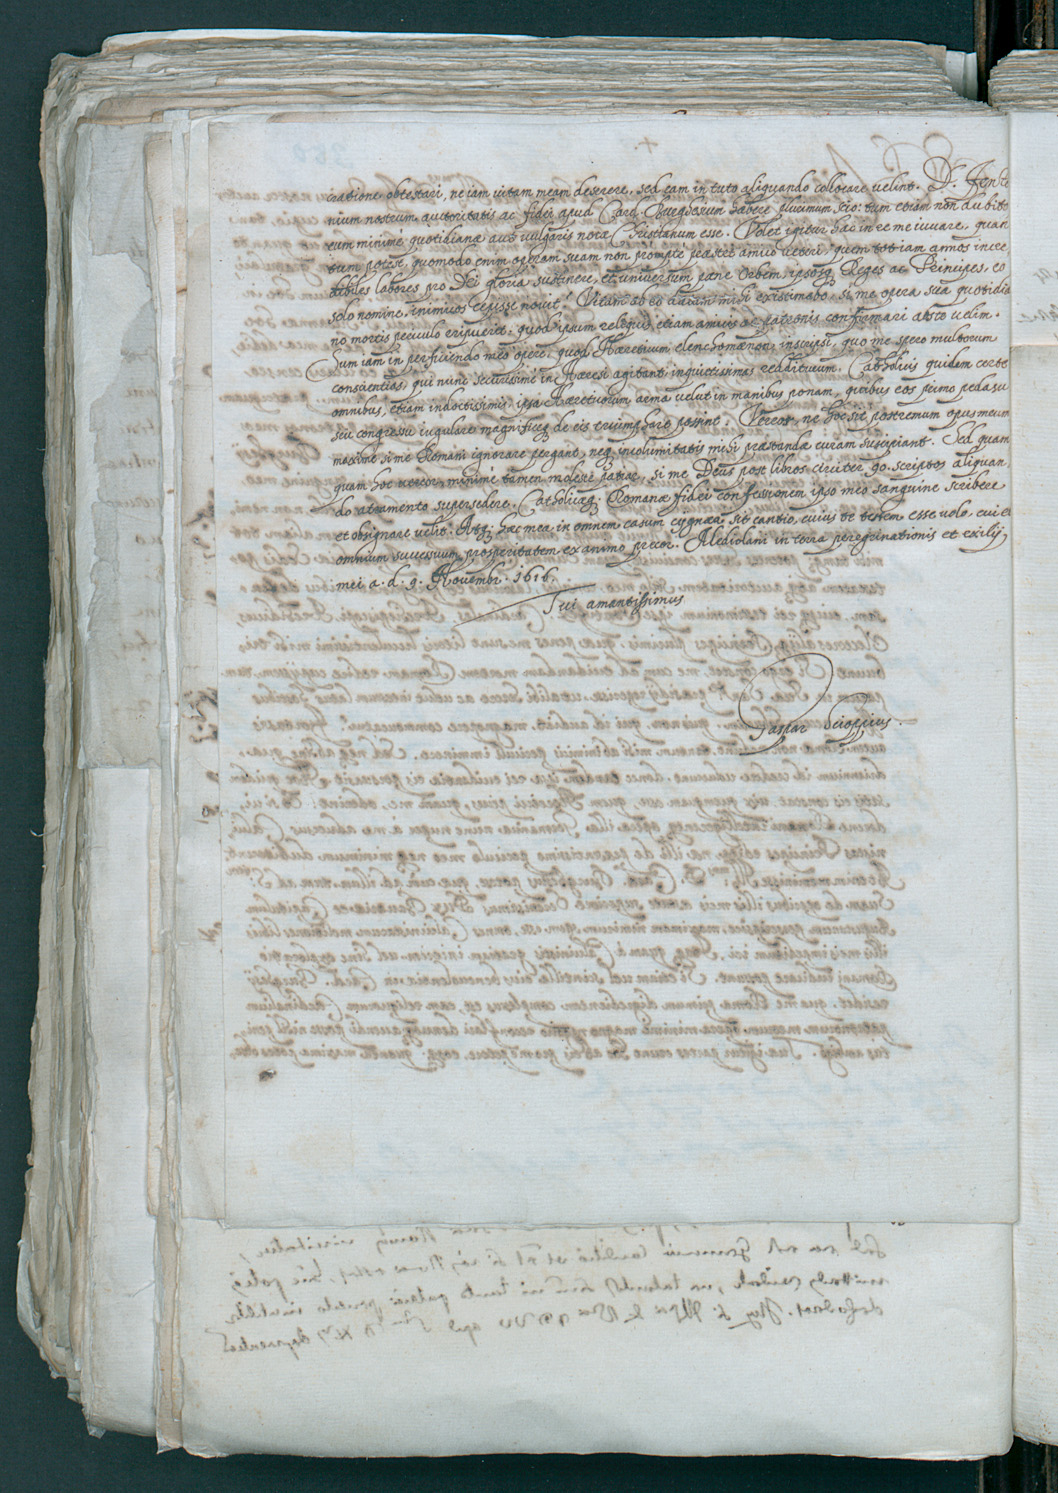 catione obtestari, ne iam vitam meam deserere, sed eam in tuto aliquando collocare velint. D. Jeni
nium nostrum autoritatis ac fidei apud Card. Burghesium habere plurimum scio: tum etiam non dubito
eum minimè quotidianæ aut vulgaris notæ Christianum esse. Volet igitur hac in re me iuvare, quan
tum potest, quomodo enim operam suam non promptè præstet amico veteri, quem tot iam annos incre
dibiles labores pro Dei gloria sustinere, et universum pæne Orbem, ipsosq. Reges ac Principes, eo
solo nomine, inimicos cepisse novit? Vitam ab eo datam mihi existimabo, si me opera sua quotidia
no mortis periculo eripuerit: quod ipsum reliquis etiam amicis ac patronis confirmari abs te velim.
Sum iam in perficiendo meo opere, quod Hæreticum elenchomenon inscripsi, quo me spero multorum
conscientias, qui nunc securissimè in Hæresi agitant, inquietissimas redditurum. Catholicis quidem certe
omnibus, etiam indoctissimis, ipsa Hæreticorum arma velut in manibus ponam, quibus eos primo pedasu
seu congressu iugulare magnificeq. de eis triumphare possint. Vereor, ne hoc sit postremum opus meum
maxime si me Romani ignorare pergant, neq. incolumitatis mihi præstandæ curam suscipiant. Sed quam
quam hoc vereor, minimè tamen molestè patiar, si me Deus post libros circiter 90. scriptos aliquan
do atramento supersedere, Catholicæq. Romanæ fidei confessionem ipso meo sanguine scribere
et obsignare velit. Atq. hæc mea in omnem casum cygnæa sit cantio, cuius te testem esse volo, cui et
omnium successuum prosperitatem ex animo precor. Mediolani in terra peregrinationis et exilij
mei a. d. 9. Novembr. 1616.
Tui amantissimus
Gaspar Scioppius.